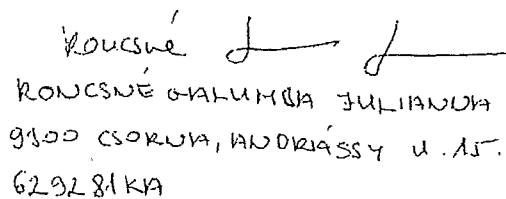 Roncsné
RONCSNÉ GALUMBA JULIANNA
9300 CSORNA, ANDRÁSSY u. 15.
629281KA